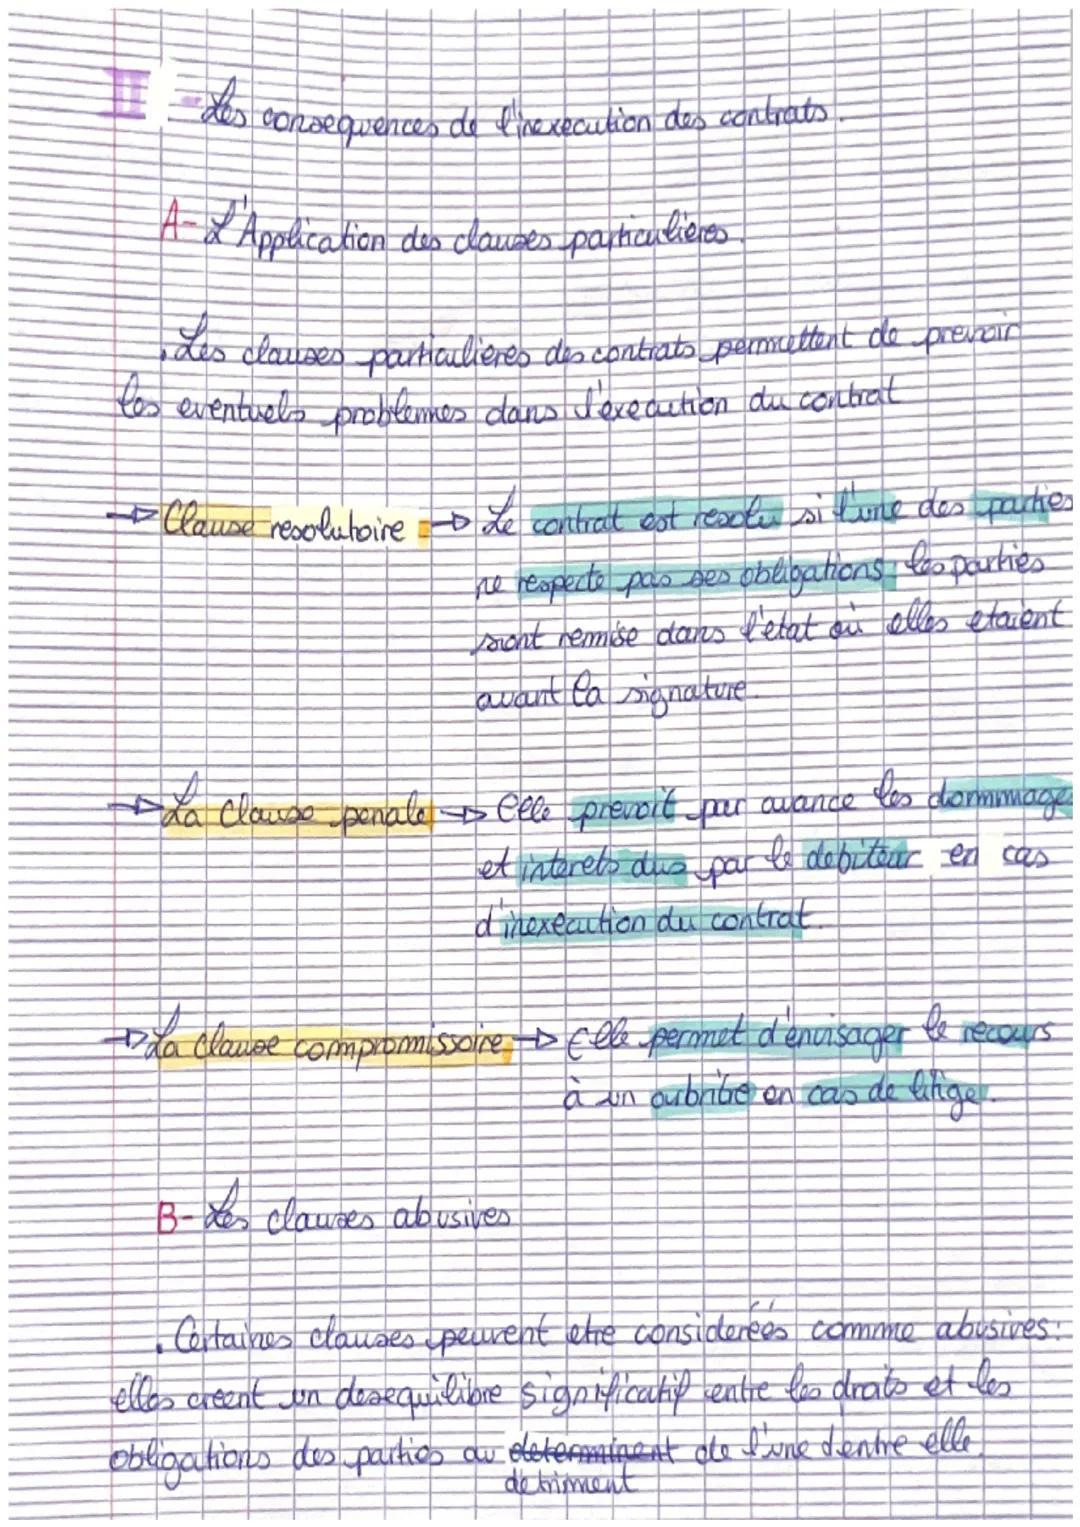 II - Les consequences de l'inexecution des contrats.
A- L'Application des clauses particulieres.
. Les clauses particulieres des contrats permettent de prevoir
les eventuels problemmes dans l'execution du contrat
→ Clause resolutoire → Le contrat est resolu si l'une des parties
ne respecte pas ses obligations; les parties
sront remise dans l'etat où elles etaient
avant la signature.
→ La clause penale → Elle prevoit par avance les dommmages
et interets dus par le debiteur en cas
d'inexecution du contrat.
→ La clause compromissoire → Elle permet d'envisager le recours
à un arbitre en cas de litige.
B- Les clauses abusives
. Certaines clauses peuvent etre considereés commme abusives:
elles creent un desequilibre significatif entre les droits et les
obligations des parties au determinent de l'une d'entre elle
detriment